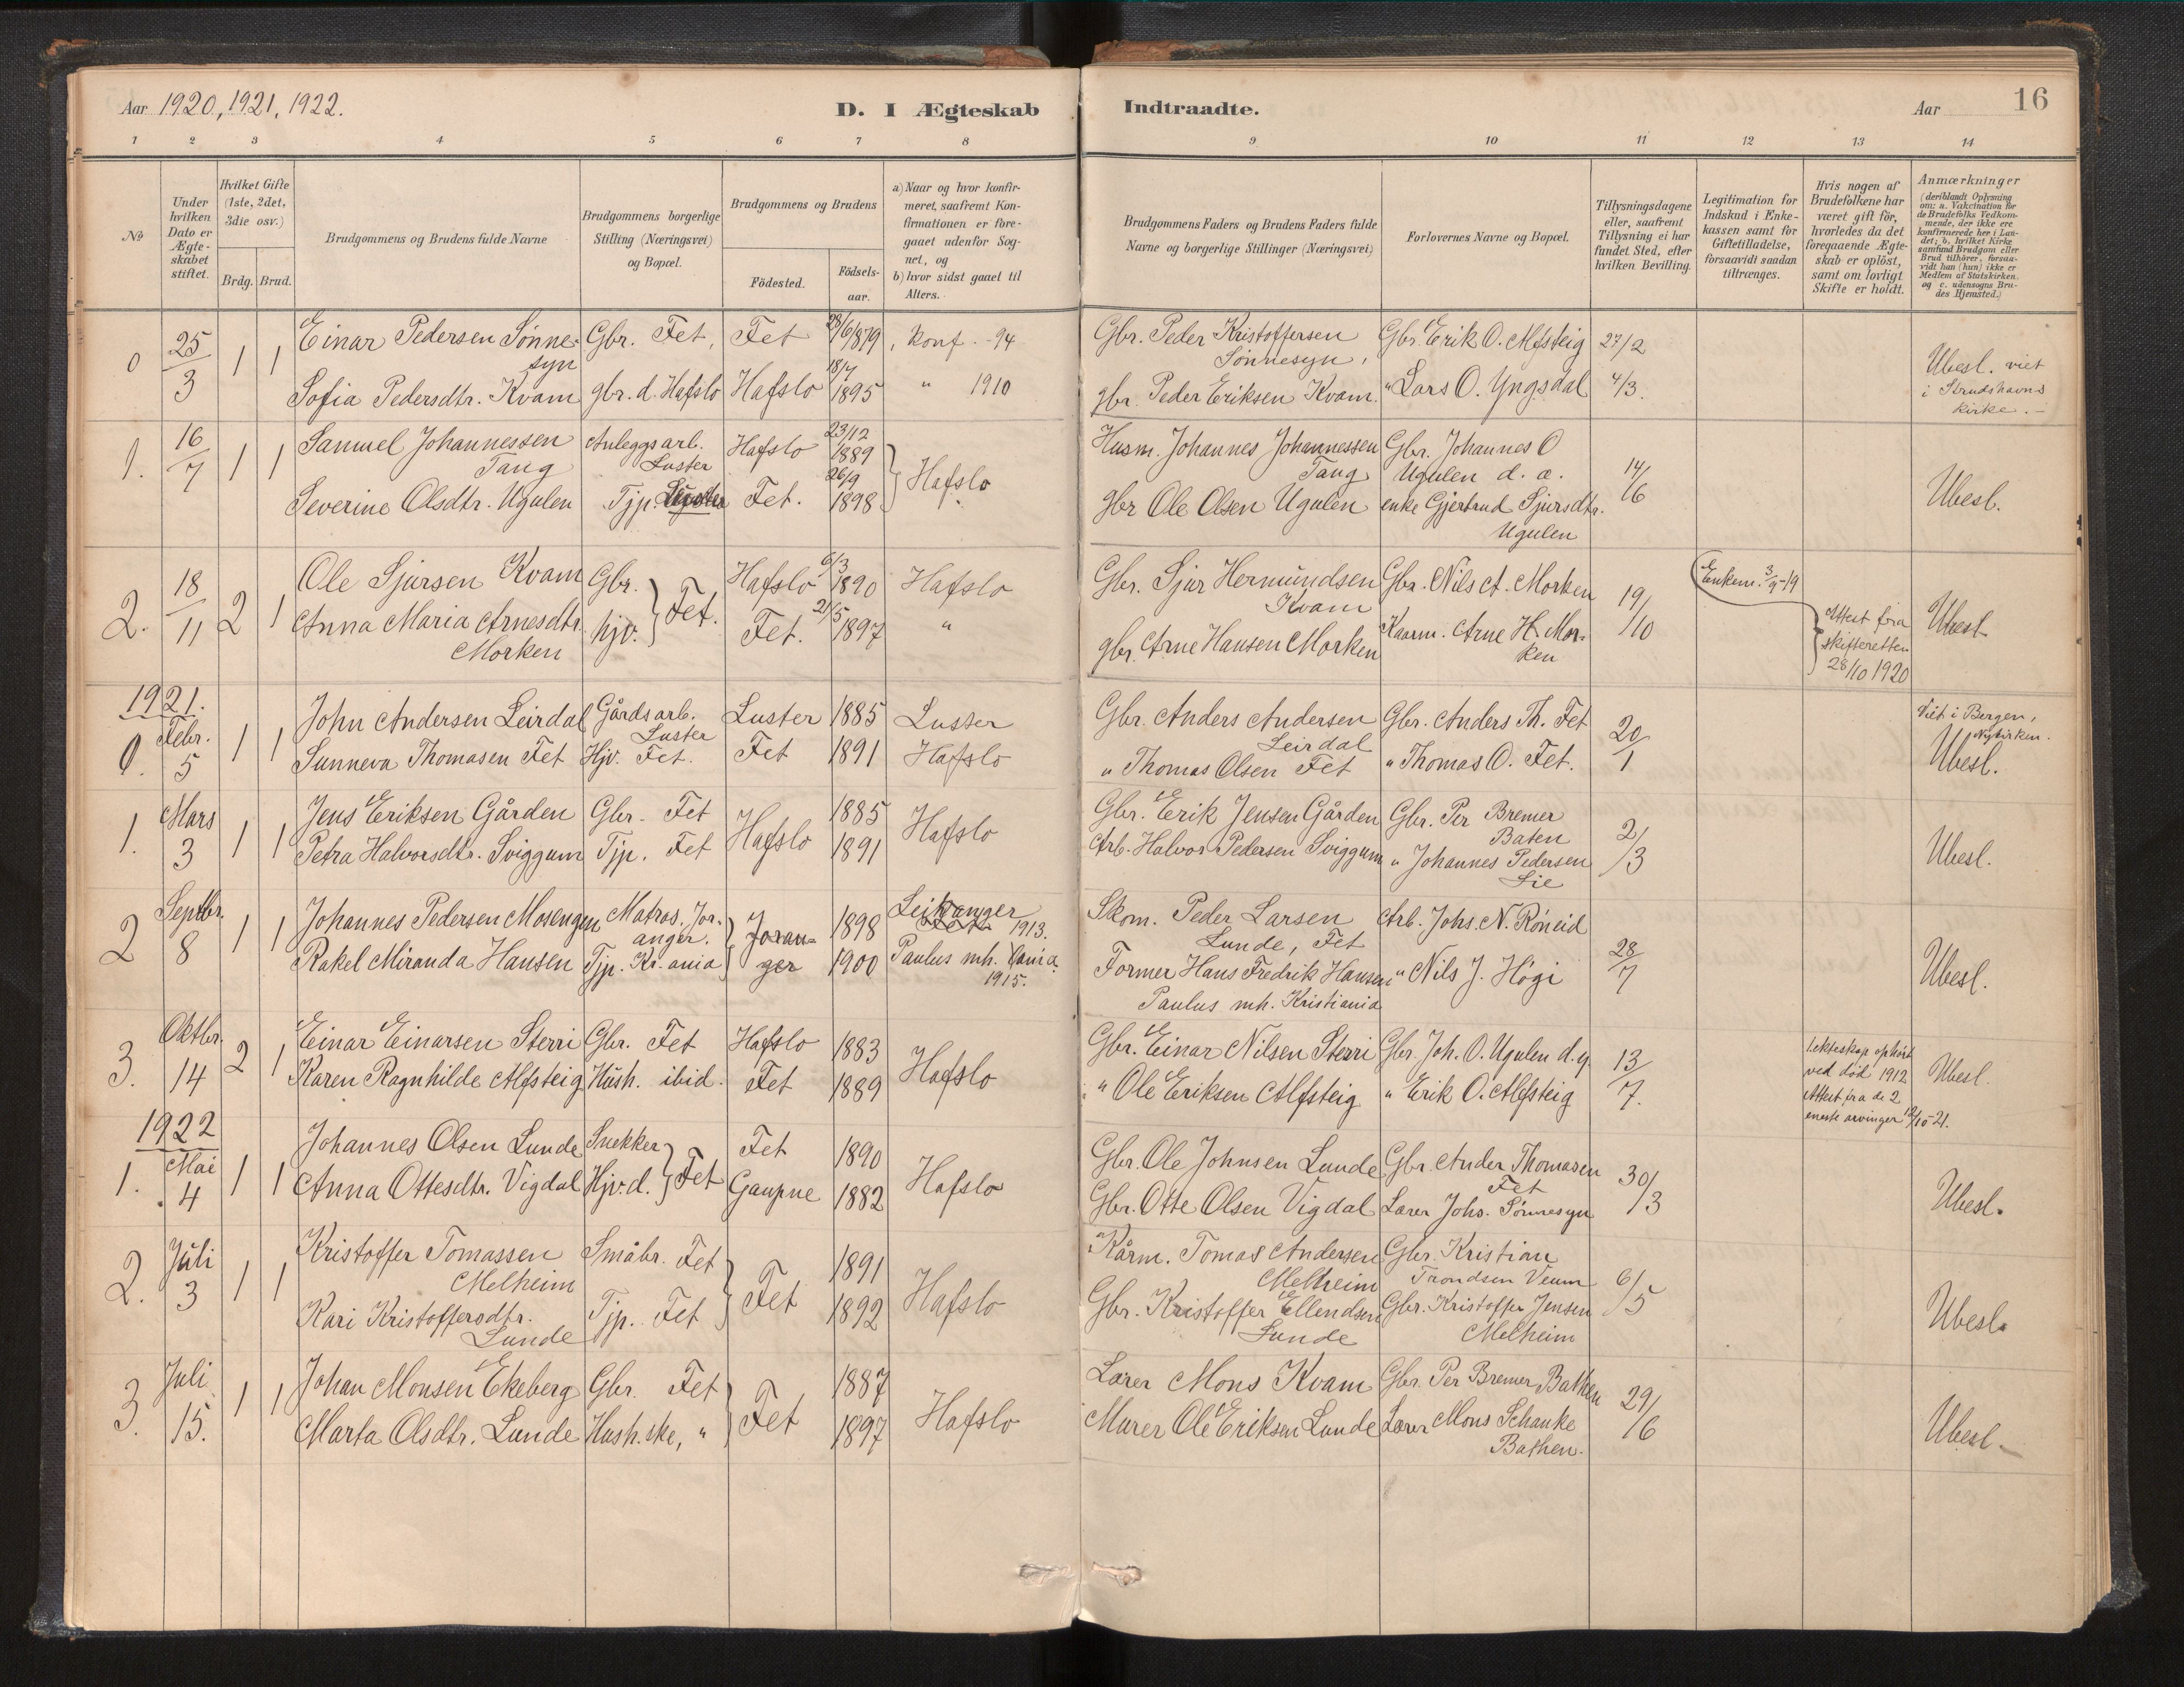 Aar 1920, 1921, 1922.
D. I Ægteskab
Indtraadte.
Aar
16
1 2 3 4 5 6 7 8 9 10 11 12 13 14
No
Under hvilken Dato er Ægteskabet stiftet.
Hvilket Gifte (1ste, 2det, 3die osv.)
Brdg. Brud.
Brudgommens og Brudens fulde Navne
Brudgommens borgerlige Stilling (Næringsvei) og Bopæl.
Brudgommens og Brudens
Födested.
Födselsaar.
a) Naar og hvor konfirmeret, saafremt Konfirmationen er foregaaet udenfor Sognet, og
b) hvor sidst gaaet til Alters.
Brudgommens Faders og Brudens Faders fulde Navne og borgerlige Stillinger (Næringsvei)
Forlovernes Navne og Bopæl.
Tillysningsdagene eller, saafremt Tillysning ei har fundet Sted, efter hvilken Bevilling.
Legitimation for Indskud i Enkekassen samt for Giftetilladelse, forsaavidt saadan tiltrænges.
Hvis nogen af Brudefolkene har været gift för, hvorledes da det foregaaende Ægteskab er oplöst, samt om lovligt Skifte er holdt.
Anmærkninger (deriblandt Oplysning om: a. Vakcination for de Brudefolks Vedkommende, der ikke ere konfirmerede her i Landet; b. hvilket Kirkesamfund Brudgom eller Brud tilhörer, forsaavidt han (hun) ikke er Medlem af Statskirken. og c. udensogns Brudes Hjemsted.)
0 25/3 1 1 Einar Pedersen Sønnesyn Gbr. Fet, Fet 23/6/1879, konf. -94 Gbr. Peder Kristoffersen Sønnesyn, Gbr. Erik O. Alfsteig 27/2
Sofia Pedersdtr. Kvam gbr. d. Hafslo Hafslo 18/7 1895 " 1910 gbr. Peder Eriksen Kvam. " Lars O. Yngsdal 4/3. Ubesl. viet i Strudshavns kirke. -
1. 16/7 1 1 Samuel Johannessen Tang Anleggsarb. Luster Hafslo 23/12 1889 Hafslo Husm. Johannes Johannessen Tang Gbr. Johannes O Ugulen d. æ. 14/6
Severine Olsdtr. Ugulen Tjp. Luster Fet. 26/9 1898 gbr Ole Olsen Ugulen enke Gjertrud Sjursdtr. Ugulen Ubesl.
2. 18/11 2 1 Ole Sjursen Kvam Gbr. Fet. Hafslo 6/3 1890 Hafslo Gbr. Sjur Hermundsen Kvam Gbr. Nils A. Morken 19/10 Enkem. 3/9-19
Anna Maria Arnesdtr. Morken hjv. Fet. 21/5 1897 " gbr. Arne Hansen Morken Kaarm. Arne H. Morken Attest fra skifteretten 28/10 1920 Ubesl.
1921.
0. Febr. 5 1 1 John Andersen Leirdal Gårdsarb. Luster Luster 1885 Luster Gbr. Anders Andersen Leirdal Gbr. Anders Th. Fet 20/1 Viet i Bergen, Nykirken.
Sunneva Thomasen Fet Hjv. Fet. Fet 1891 Hafslo " Thomas Olsen Fet " Thomas O. Fet. Ubesl.
1. Mars 3 1 1 Jens Eriksen Gården Gbr. Fet Hafslo 1885 Hafslo Gbr. Erik Jensen Gården Gbr. Per Bremer Baten 2/3
Petra Halvorsdtr. Sviggum Tjp. Fet 1891 Arb. Halvor Pedersen Sviggum " Johannes Pedersen Lie Ubesl.
2 Septbr. 8 1 1 Johannes Pedersen Mosengen Matros, Joranger. Joranger 1898 Leikanger 1913. Skom. Peder Larsen Lunde, Fet Arb. Johs. N. Røneid 28/7
Rakel Miranda Hansen Tjp. Kr.ania 1900 Paulus mh. Kania 1915. Former Hans Fredrik Hansen Paulus mh. Kristiania " Nils J. Högi Ubesl.
3. Oktbr. 14 2 1 Einar Einarsen Sterri Gbr. Fet Hafslo 1883 Hafslo Gbr. Einar Nilsen Sterri Gbr. Joh. O. Ugulen d.y. 13/7.
Karen Ragnhilde Alfsteig Hush. ibid. Fet 1889 " Ole Eriksen Alfsteig " Erik O. Alfsteig Ekteskap ophört ved död 1912 Attest fra de 2 eneste arvinger 12/10-21. Ubesl.
1922
1. Mai 4 1 1 Johannes Olsen Lunde Snekker Fet Fet 1890 Hafslo Gbr. Ole Johnsen Lunde Gbr. Ander Thomasen Fet 30/3
Anna Ottesdtr. Vigdal Hjv.d. Gaupne 1882 Gbr. Otte Olsen Vigdal Lærer Johs. Sønnesyn Ubesl.
2. Juli 3 1 1 Kristoffer Tomassen Melheim Småbr. Fet Fet 1891 Hafslo Kårm. Tomas Andersen Melheim Gbr. Kristian Trondsen Veum 6/5
Kari Kristoffersdtr. Lunde Tjp. Fet 1892 Gbr. Kristoffer Ellendsen Lunde Gbr. Kristoffer Jensen Melheim Ubesl.
3. Juli 15. 1 1 Johan Monsen Ekeberg Gbr. Fet Fet 1887 Hafslo Lærer Mons Kvam Gbr. Per Bremer Bathen 29/6
Marta Olsdtr. Lunde Hush.ske, " 1897 Murer Ole Eriksen Lunde Lærer Mons Schanke Bathen. Ubesl.